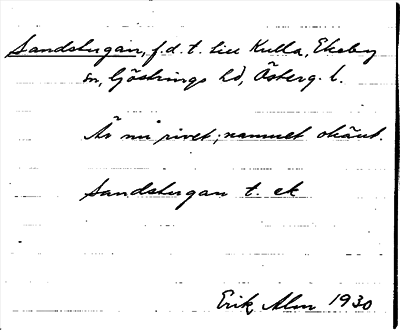 Sandstugan, f.d. t. till Kulla, Ekeby
sn, Göstrings hd, Österg. l.
Är nu rivet; namnet okänt.
Sandstugan t. ek
Erik Alm 1930